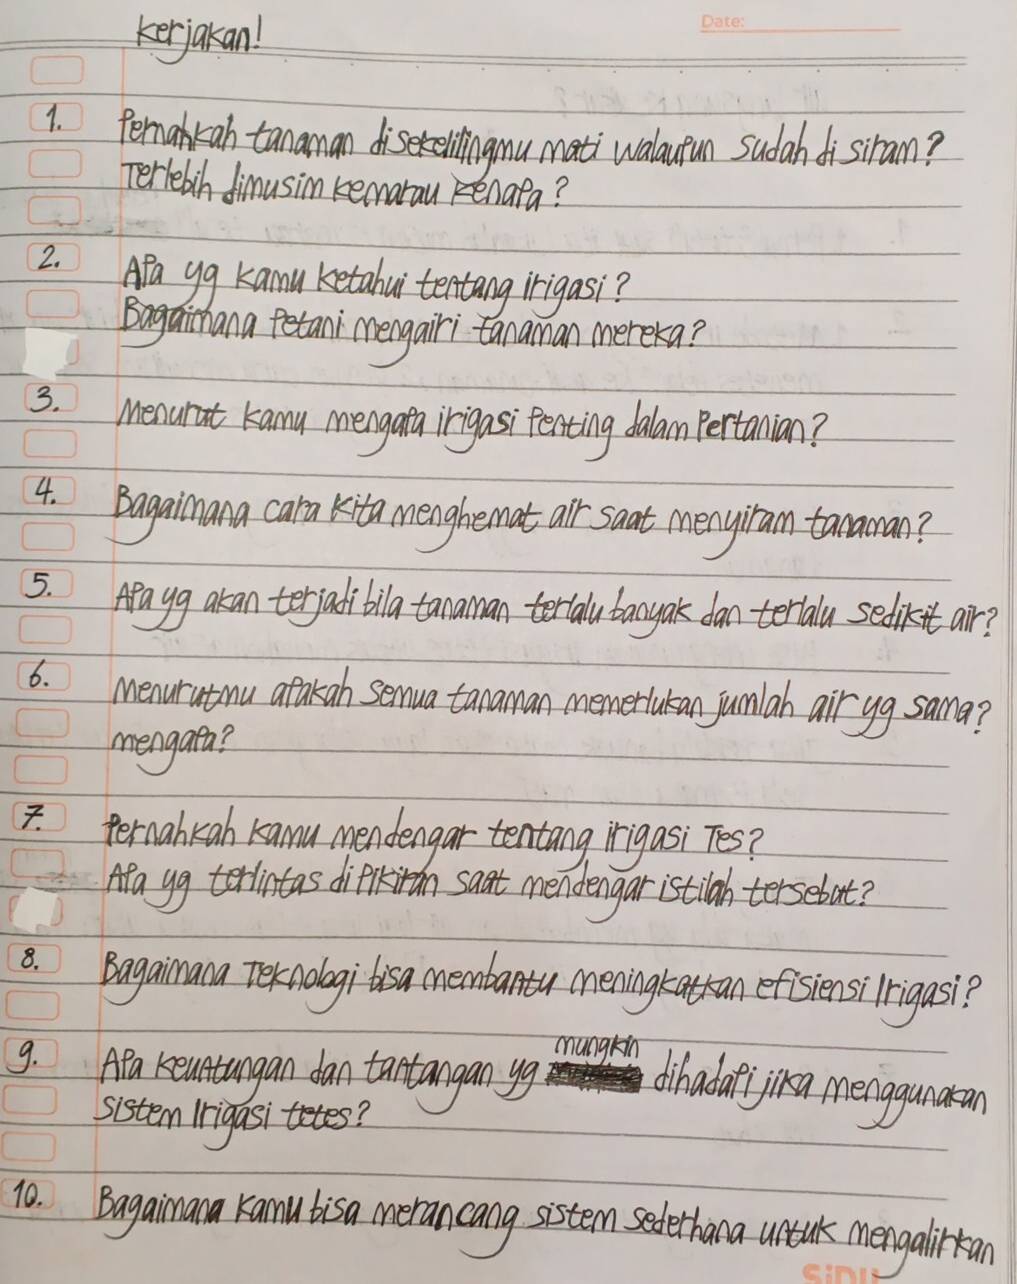 Date:
kerjakan!
1. Pernahkah tanaman disekelilingmu mati walaupun sudah di siram?
Terlebih dimusim kemarau kenapa?
2. Apa yg kamu ketahui tentang irigasi?
Bagaimana petani mengairi tanaman mereka?
3. Menurut kamu mengapa irigasi penting dalam pertanian?
4. Bagaimana cara kita menghemat air saat menyiram tanaman?
5. Apa yg akan terjadi bila tanaman terlalu banyak dan terlalu sedikit air?
6. Menurutmu apakah semua tanaman memerlukan jumlah air yg sama?
mengapa?
7. Pernahkah kamu mendengar tentang irigasi Tes?
Apa yg terlintas di pikiran saat mendengar istilah tersebut?
8. Bagaimana Teknologi bisa membantu meningkatkan efisiensi Irigasi?
9. Apa keuntungan dan tantangan yg mungkin dihadapi jika menggunakan
sistem Irigasi tetes?
10. Bagaimana kamu bisa merancang sistem sederhana untuk mengalirkan
SiDU